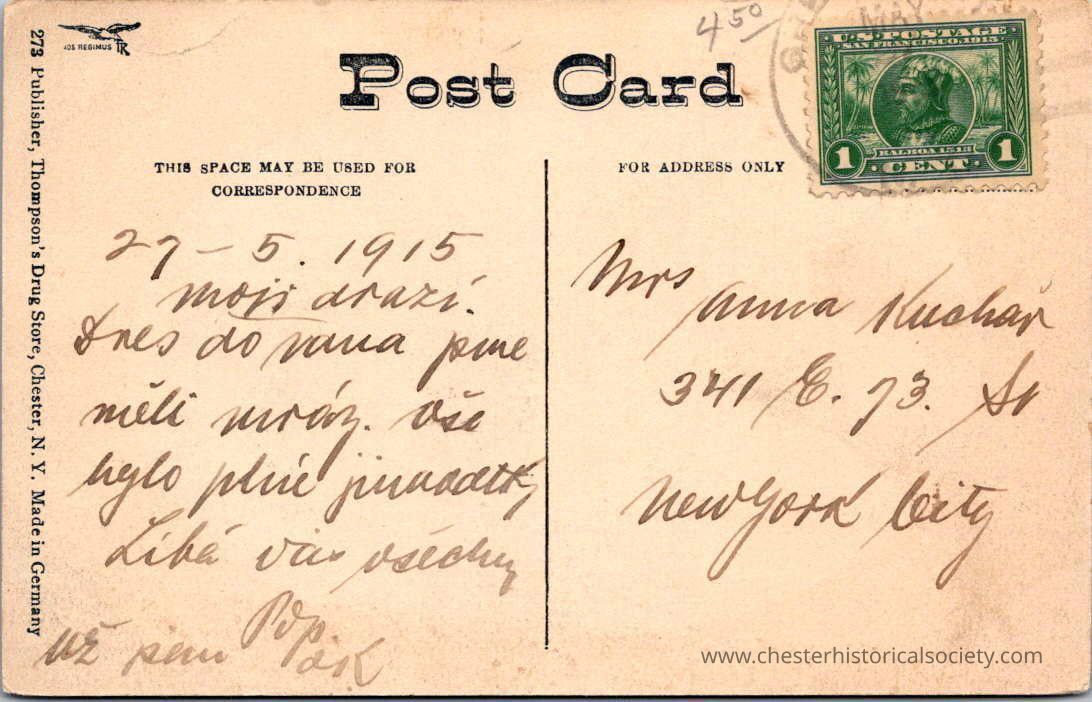 273 Publisher, Thompson's Drug Store, Chester, N. Y. Made in Germany
Post Card
450
MAY
U·S·POSTAGE
SAN FRANCISCO, 1915
BALBOA 1513
1 CENT 1
THIS SPACE MAY BE USED FOR
CORRESPONDENCE
FOR ADDRESS ONLY
27 – 5. 1915
moji drazí.
Dnes do rána jsme
měli mráz. vše
bylo plné
Líbá vás všechny
Už jsem
Mrs
Anna Kuchař
341 E. 73. St
New York City
www.chesterhistoricalsociety.com